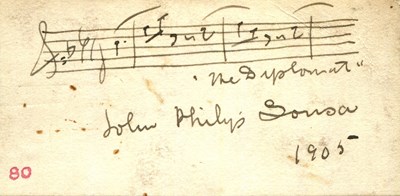 "The Diplomat"
John Philip Sousa
1905
80